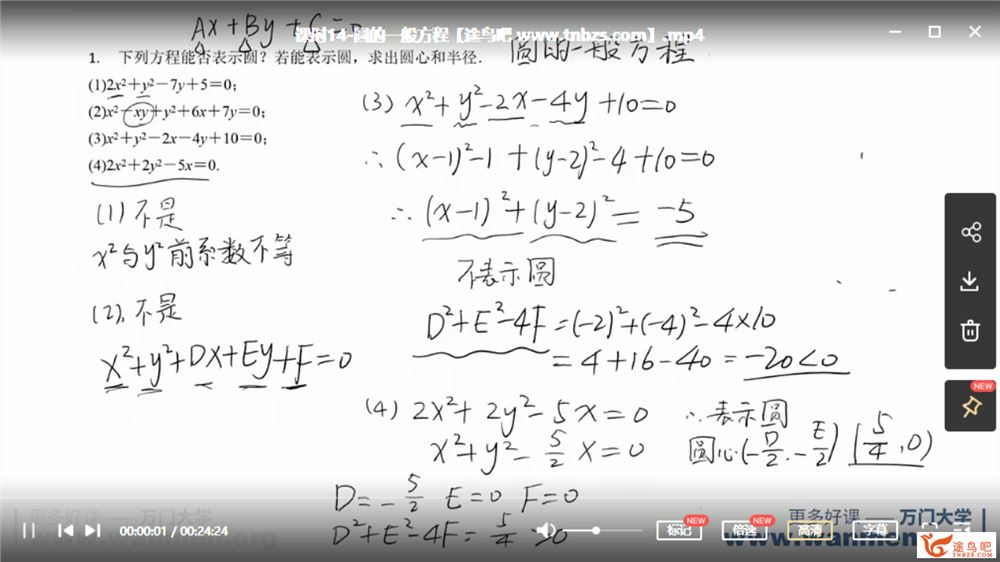 Ax+By+C=0
课时14-圆的一般方程【途鸟吧 www.tnbzs.com】.mp4
圆的一般方程
1. 下列方程能否表示圆？若能表示圆，求出圆心和半径.
(1)2x²+y²-7y+5=0;
(2)x²-xy+y²+6x+7y=0;
(3)x²+y²-2x-4y+10=0;
(4)2x²+2y²-5x=0.
(1) 不是
x²与y²前系数不等
(2). 不是
x²+y²+Dx+Ey+F=0
(3) x²+y²-2x-4y+10=0
∴(x-1)²-1+(y-2)²-4+10=0
∴(x-1)²+(y-2)²=-5
不表示圆
D²+E²-4F=(-2)²+(-4)²-4×10
=4+16-40=-20<0
(4) 2x²+2y²-5x=0
x²+y²-5/2 x=0
D=-5/2 E=0 F=0
D²+E²-4F=5/4>0
∴表示圆
圆心(-D/2,-E/2) (5/4,0)
NEW
更多好课——万门大学
00:00:01 / 00:24:24
标记 NEW
倍速 NEW
高清
字幕
更多好课——万门大学
途鸟吧
TNBZS.COM